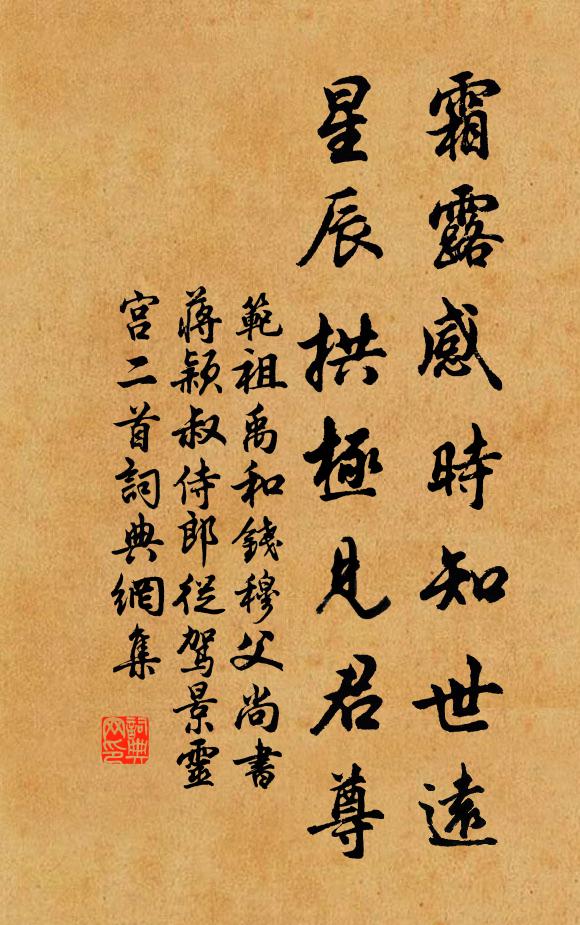 霜露感時知世遠
星辰拱極見君尊
範祖禹和錢穆父尚書
蔣穎叔侍郎從駕景靈
宮二首詞典網集
詞典網印